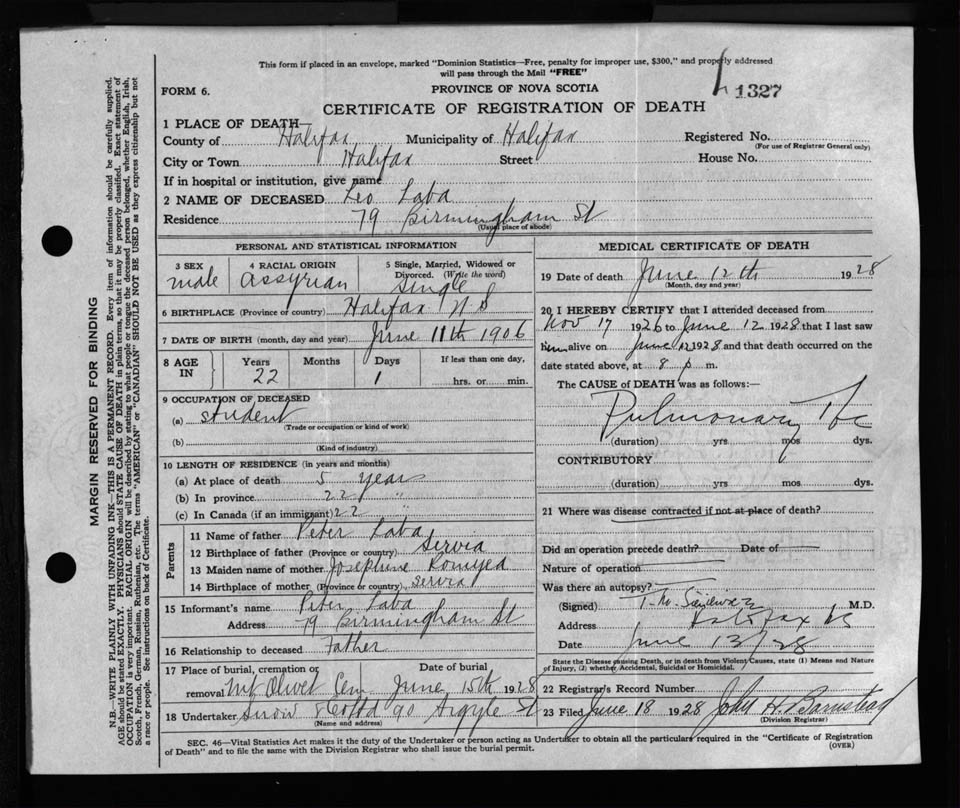 This form if placed in an envelope, marked "Dominion Statistics—Free, penalty for improper use, $300," and properly addressed
will pass through the Mail "FREE"
FORM 6.
PROVINCE OF NOVA SCOTIA
1327
CERTIFICATE OF REGISTRATION OF DEATH
1 PLACE OF DEATH—
County of Halifax Municipality of Halifax Registered No.
(For use of Registrar General only)
City or Town Halifax Street House No.
If in hospital or institution, give name
2 NAME OF DECEASED Leo Laba
Residence 79 Birmingham St
(Usual place of abode)
PERSONAL AND STATISTICAL INFORMATION
3 SEX
male
4 RACIAL ORIGIN
Assyrian
5 Single, Married, Widowed or
Divorced. (Write the word)
Single
6 BIRTHPLACE (Province or country) Halifax N S
7 DATE OF BIRTH (month, day and year) June 11th 1906
8 AGE IN
Years Months Days If less than one day,
22 1 hrs. or min.
9 OCCUPATION OF DECEASED
(a) student
(Trade or occupation or kind of work)
(b)
(Kind of industry)
10 LENGTH OF RESIDENCE (in years and months)
(a) At place of death 5 years
(b) In province 22 "
(c) In Canada (if an immigrant) 22 "
Parents
11 Name of father Peter Laba
12 Birthplace of father (Province or country) Servia
13 Maiden name of mother Josephine
14 Birthplace of mother (Province or country) Servia
15 Informant's name Peter Laba
Address 79 Birmingham St
16 Relationship to deceased Father
17 Place of burial, cremation or Date of burial
removal Mt Olivet Cem June 15th 1928
18 Undertaker Snow & Co Ltd 90 Argyle St
(Name and address)
MEDICAL CERTIFICATE OF DEATH
19 Date of death June 12th 1928
(Month, day and year)
20 I HEREBY CERTIFY that I attended deceased from
Nov 17 1926 to June 12 1928 that I last saw
him alive on June 12 1928 and that death occurred on the
date stated above, at 8 p m.
The CAUSE of DEATH was as follows:—
Pulmonary Tbc
(duration) yrs mos dys.
CONTRIBUTORY
(duration) yrs mos dys.
21 Where was disease contracted if not at place of death?
Did an operation precede death? Date of
Nature of operation
Was there an autopsy?
(Signed) M.D.
Address Halifax NS
Date June 13/28
State the Disease causing Death, or in death from Violent Causes, state (1) Means and Nature
of Injury, (2) whether Accidental, Suicidal or Homicidal.
22 Registrar's Record Number
23 Filed June 18 1928 John H. Barnstead
(Division Registrar)
SEC. 46—Vital Statistics Act makes it the duty of the Undertaker or person acting as Undertaker to obtain all the particulars required in the "Certificate of Registration
of Death" and to file the same with the Division Registrar who shall issue the burial permit.
(OVER)
MARGIN RESERVED FOR BINDING
N.B.—WRITE PLAINLY WITH UNFADING INK—THIS IS A PERMANENT RECORD. Every item of information should be carefully supplied.
AGE should be stated EXACTLY. PHYSICIANS should STATE CAUSE OF DEATH in plain terms, so that it may be properly classified. Exact statement of
OCCUPATION is very important. RACIAL ORIGIN will be described by stating to what people or tongue the deceased person belonged, whether English, Irish,
Scotch, French, German, Russian, Ruthenian, etc. The terms "AMERICAN" or "CANADIAN" SHOULD NOT BE USED as they express citizenship but not
a race or people. See instructions on back of Certificate.